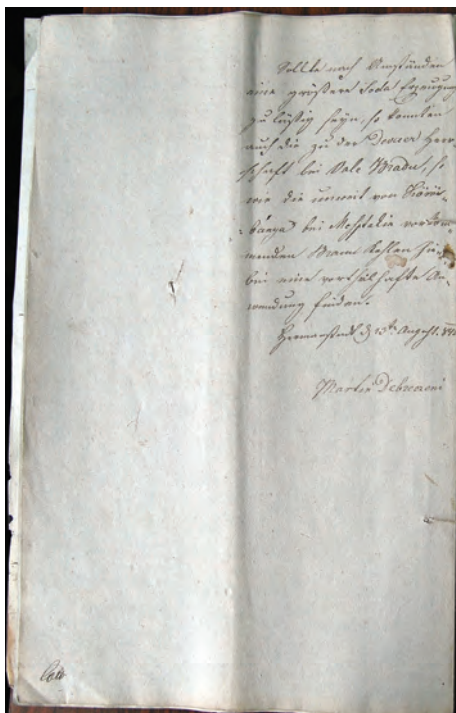 Sollte nach Umständen
eine größere Soda Erzeugung
zu läßig seyn, so könnten
auch die zu der Devaer Herr-
schaft bei Vale Bradu, so
wie die unweit von Körös-
bánya bei Mesztakin vorkom-
menden Braun Kohlen hie-
bei eine vortheilhafte An-
wendung finden.
Hermanstadt d 13ten August
Martin Debreczeni